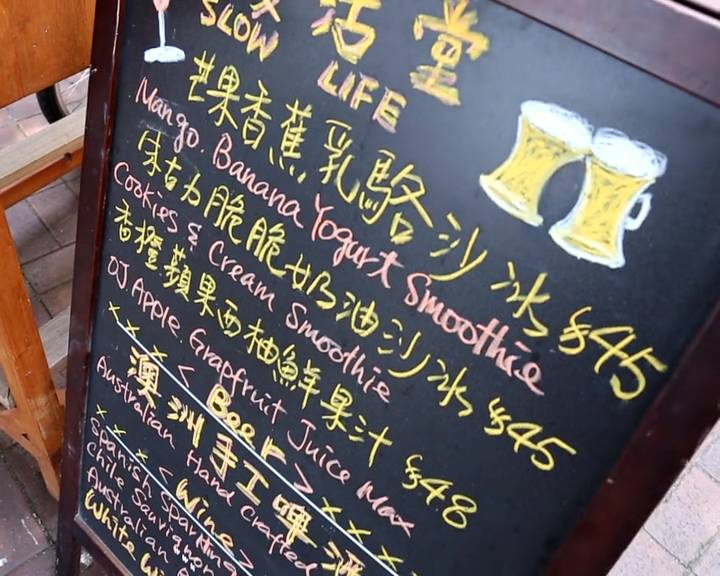 活堂
SLOW LIFE
芒果香蕉乳酪沙冰 $45
Mango. Banana Yogurt Smoothie
朱古力脆脆奶油沙冰 $45
Cookies & Cream Smoothie
香橙蘋果西柚鮮果汁 $48
OJ Apple Grapfruit Juice Max
x x x < Beer > x x x x
澳洲手工啤酒
Australian Hand Crafted
x x x < Wine >
Spanish Sparkling
Chile Sauvignon
Australian
White